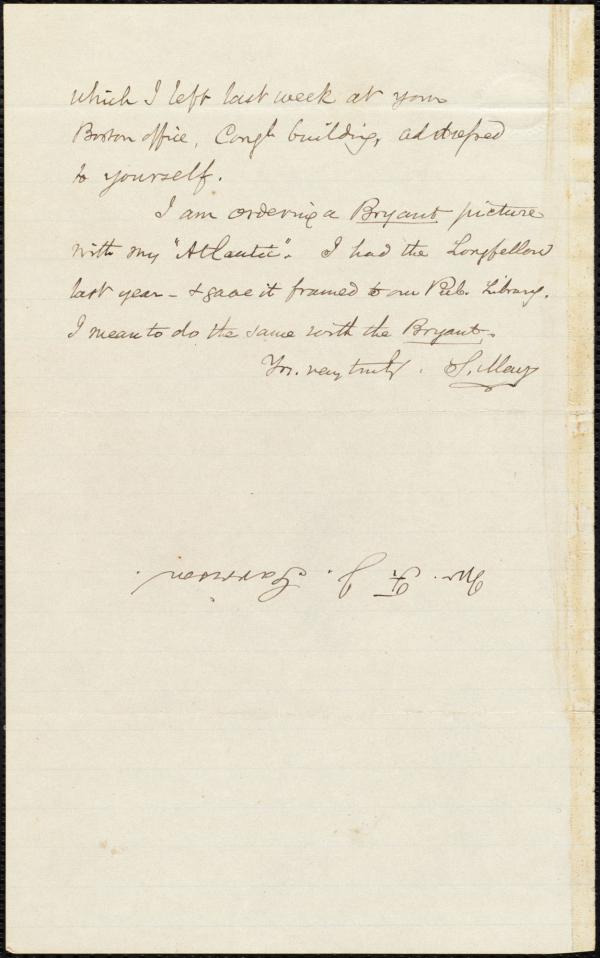 which I left last week at your
Boston office, Congl. building, addressed
to yourself.
I am ordering a Bryant picture
with my "Atlantic". I had the Longfellow
last year - & gave it framed to our Pub. Library.
I mean to do the same with the Bryant.
Yrs. very truly, S. May
Mr. F. J. Garrison.